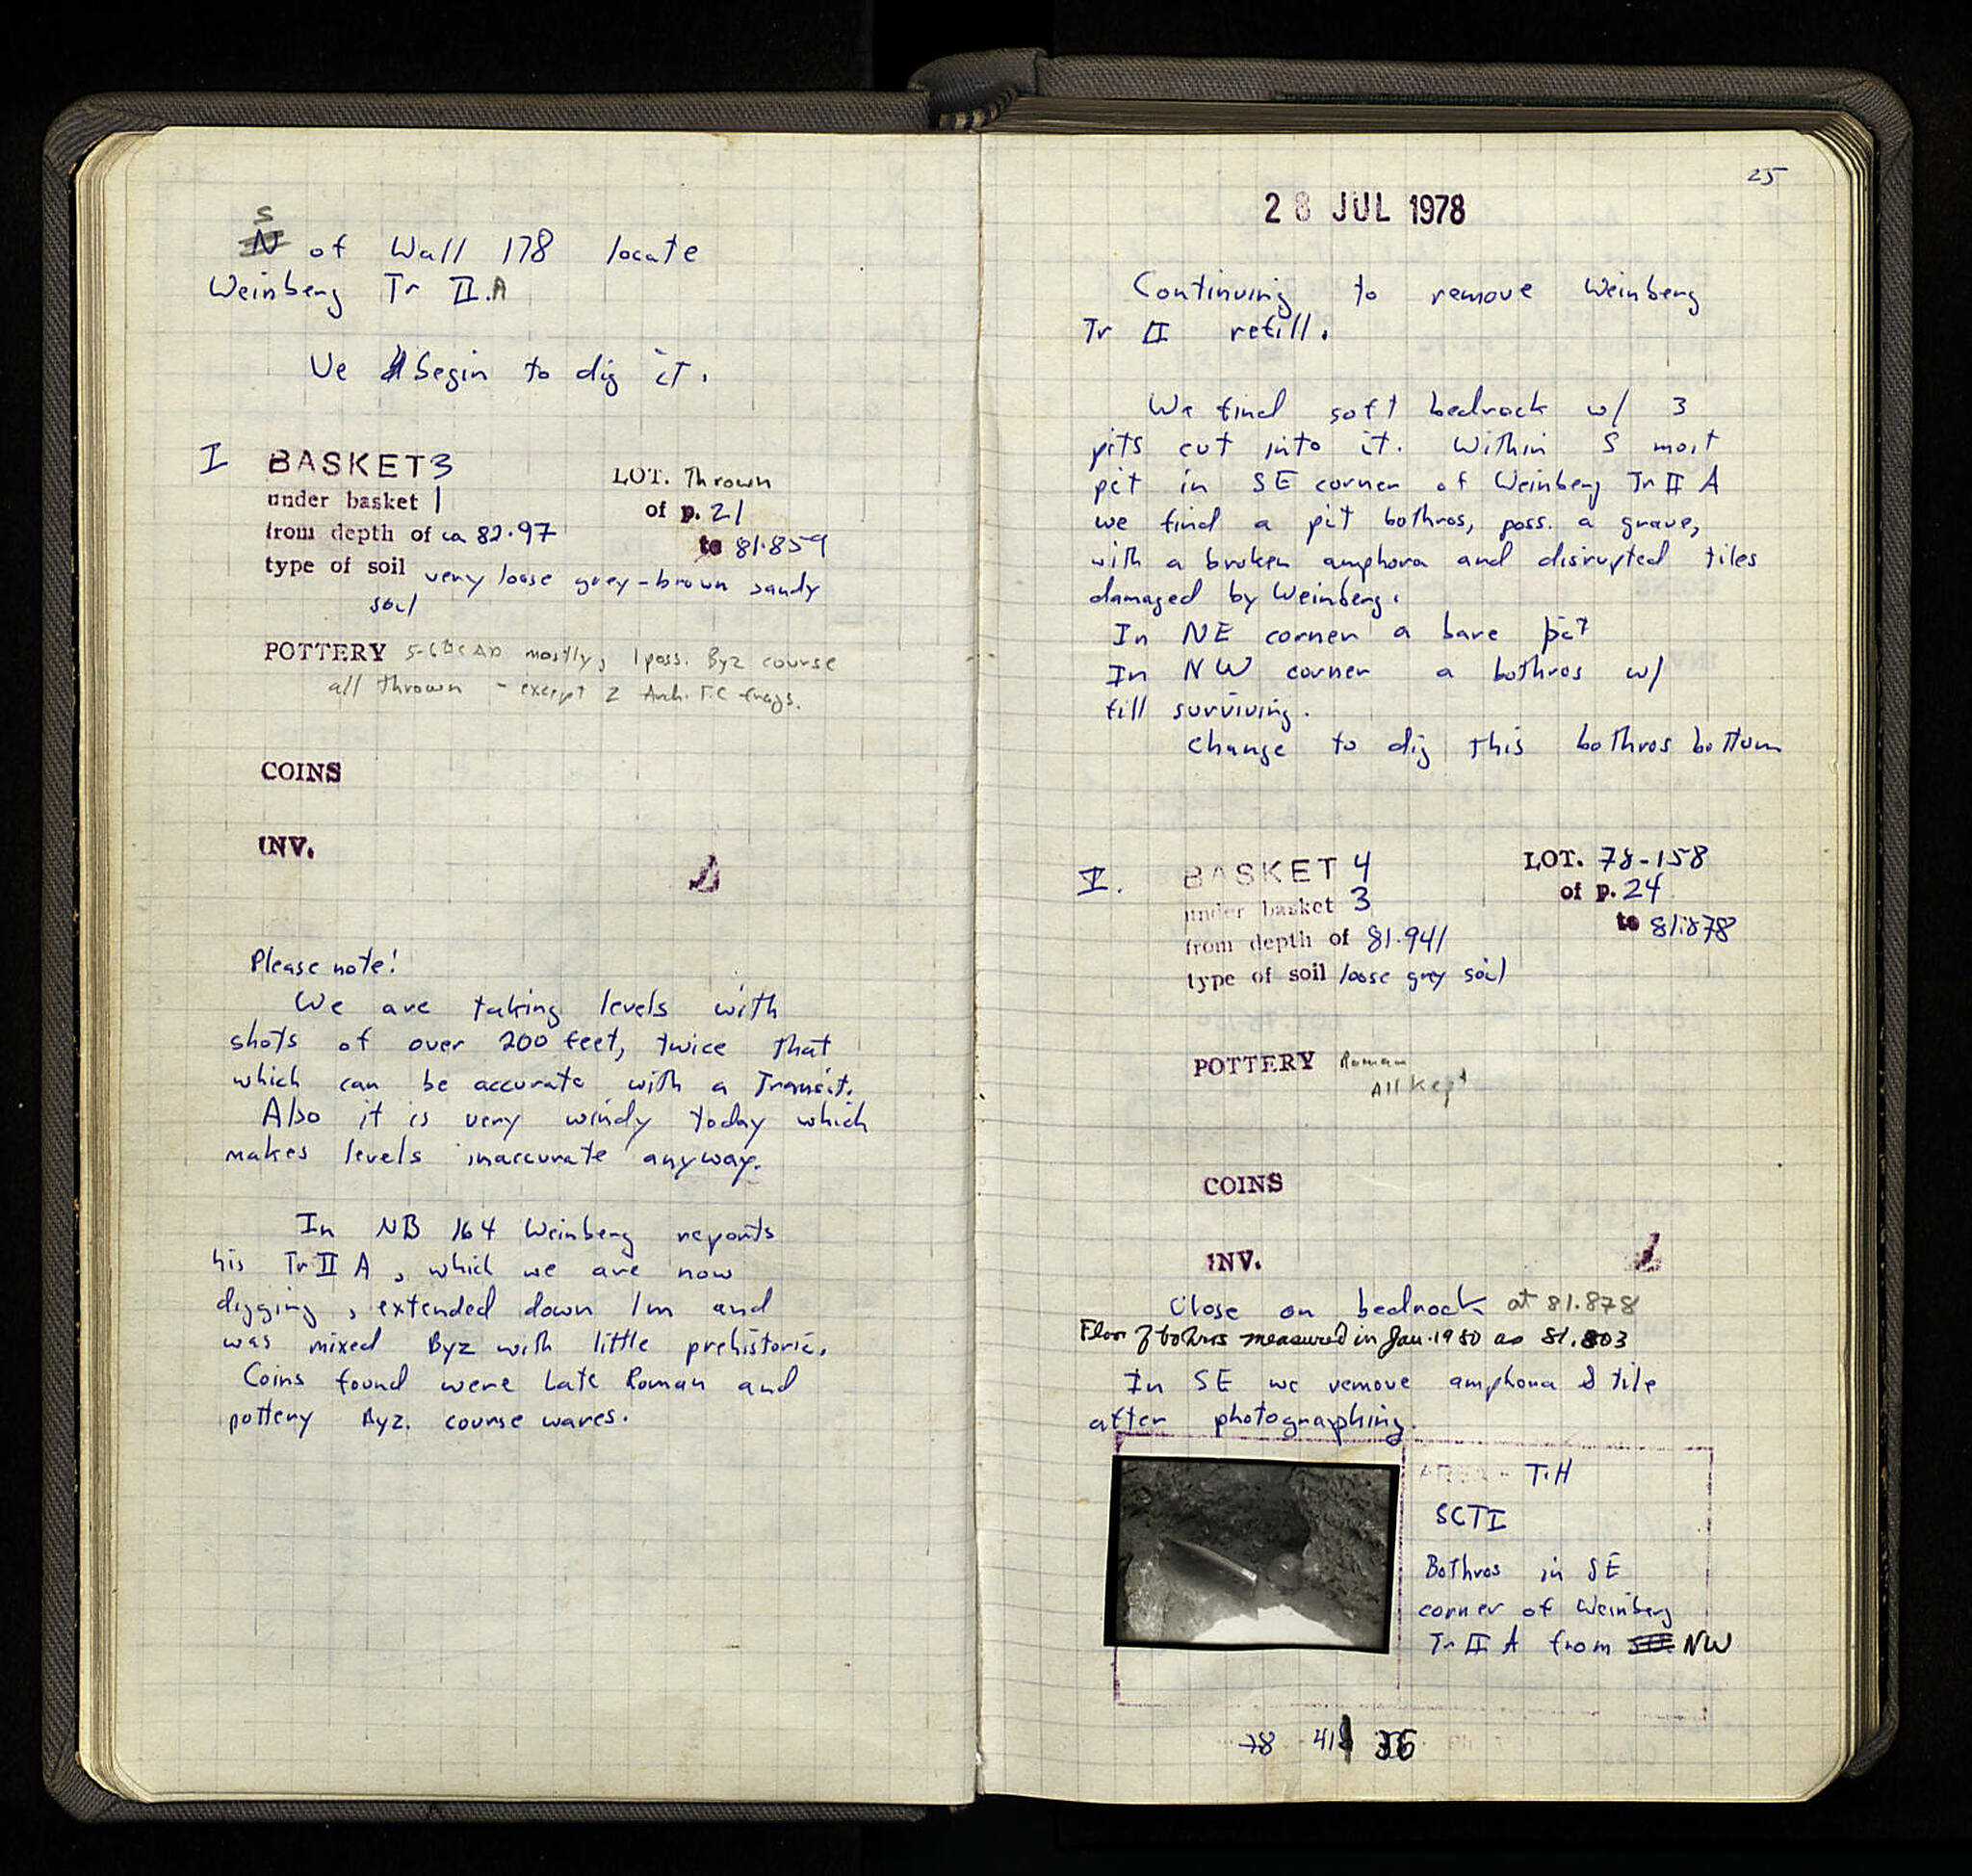 S
N of Wall 178 locate
Weinberg Tr II.A
We begin to dig it.
I BASKET 3 LOT. Thrown
under basket 1 of p. 21
from depth of ca 82.97 to 81.859
type of soil very loose grey-brown sandy
soil
POTTERY AD mostly, 1 poss. Byz course
all thrown - except 2 Arch. T.C frags.
COINS
INV.
Please note!
We are taking levels with
shots of over 200 feet, twice that
which can be accurate with a Transit.
Also it is very windy today which
makes levels inaccurate anyway.
In NB 164 Weinberg reports
his Tr II A, which we are now
digging, extended down 1m and
was mixed Byz with little prehistoric.
Coins found were Late Roman and
pottery Byz. course wares.
25
28 JUL 1978
Continuing to remove Weinberg
Tr II refill.
We find soft bedrock w/ 3
pits cut into it. Within S most
pit in SE corner of Weinberg Tr II A
we find a pit bothros, poss. a grave,
with a broken amphora and disrupted tiles
damaged by Weinberg.
In NE corner a bare pit
In NW corner a bothros w/
fill surviving.
Change to dig this bothros bottom
V. BASKET 4 LOT. 78-158
under basket 3 of p. 24
from depth of 81.941 to 81.878
type of soil loose grey soil
POTTERY Roman
All kept
COINS
INV.
Close on bedrock at 81.878
Floor of bothros measured in Jan. 1980 as 81.803
In SE we remove amphora & tile
after photographing.
AREA - T.H
SCTI
Bothros in SE
corner of Weinberg
Tr II A from NW
78 41 36